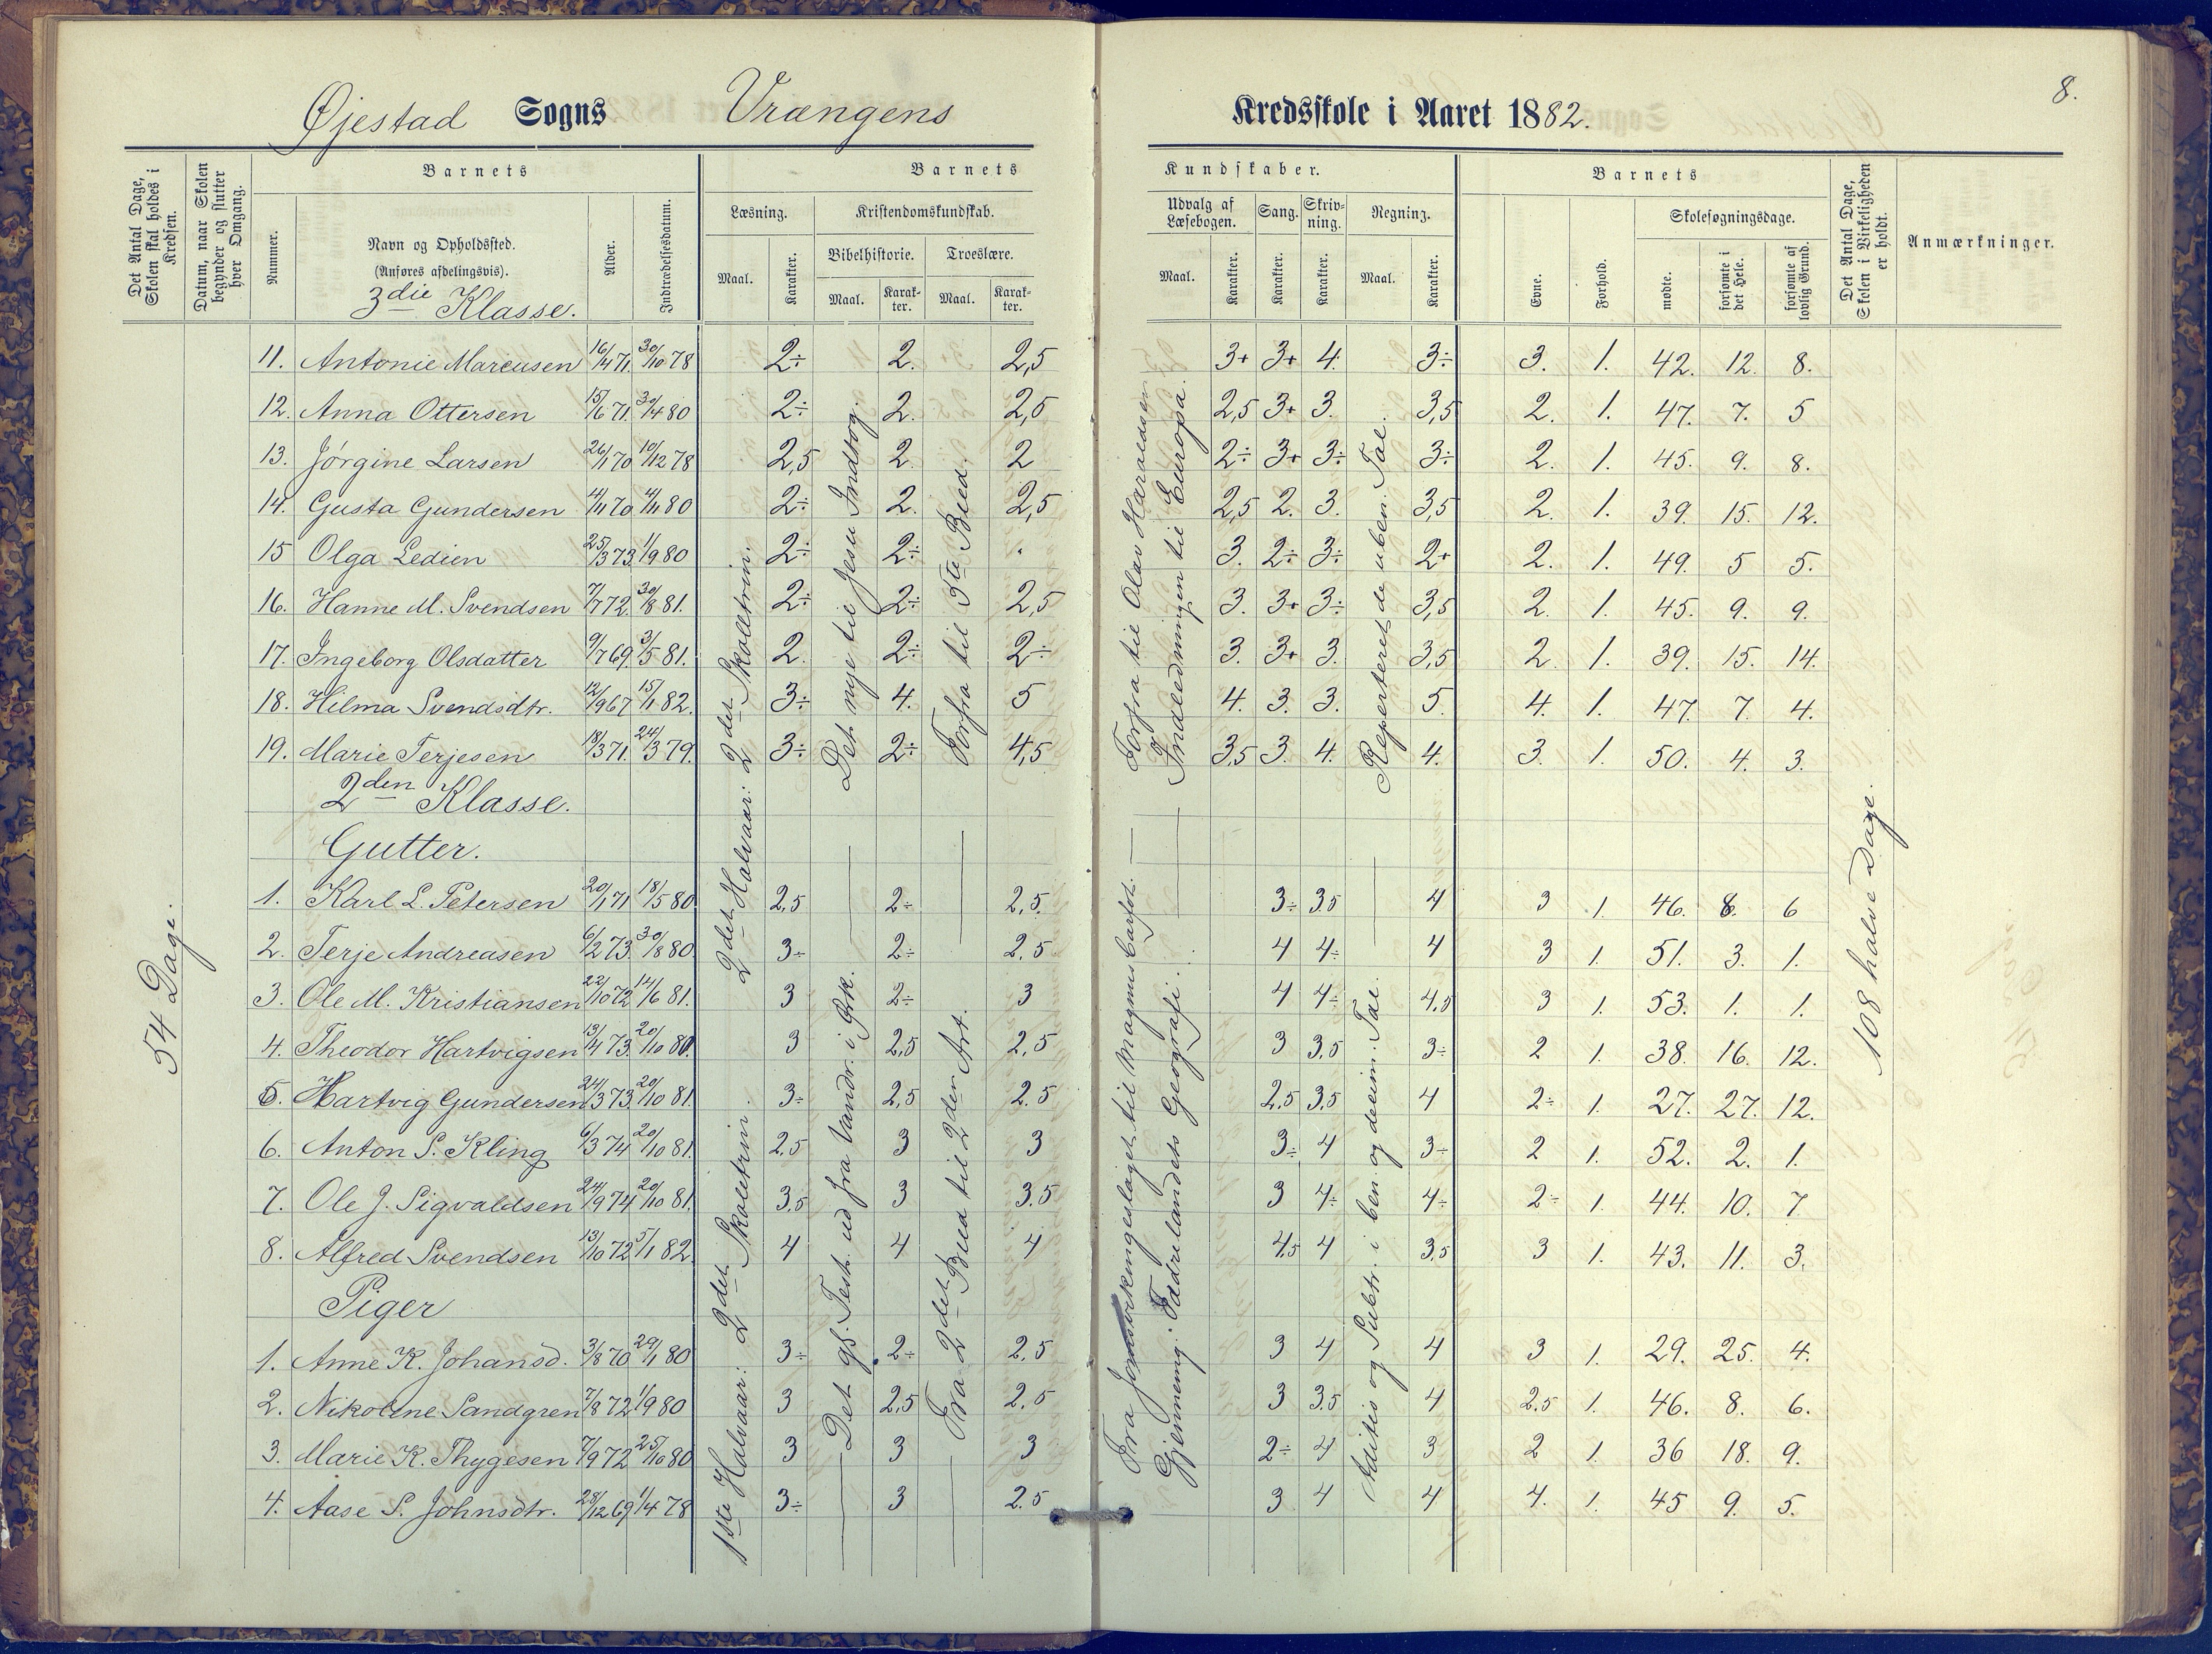 Øjestad Sogns Vrængens Kredsskole i Aaret 1882.
8.
Det Antal Dage, Skolen skal holdes i Kredsen.
Datum, naar Skolen begynder og slutter hver Omgang.
Barnets
Nummer.
Navn og Opholdssted.
(Anføres afdelingsvis).
3die Klasse.
Alder.
Indtrædelsesdatum.
Barnets Kundskaber.
Læsning.
Maal. Karakter.
Kristendomskundskab.
Bibelhistorie. Troeslære.
Maal. Karakter. Maal. Karakter.
Udvalg af Læsebogen. Sang. Skrivning. Regning.
Maal. Karakter. Karakter. Karakter. Maal. Karakter.
Barnets
Evne. Forhold.
Skolesøgningsdage.
mødte. forsømte i det Hele. forsømte af lovlig Grund.
Det Antal Dage, Skolen i Virkeligheden er holdt.
Anmærkninger.
11. Antonie Marcusen 16/4 71. 30/10 78 2÷ 2. 2,5 3+ 3+ 4. 3÷ 3. 1. 42. 12. 8.
12. Anna Ottersen 15/6 71. 30/4 80 2÷ 2. 2,5 2,5 3+ 3. 3,5 2. 1. 47. 7. 5
13. Jørgine Larsen 26/1 70 10/12 78 2,5 2. 2 2÷ 3+ 3÷ 3÷ 2. 1. 45. 9. 8.
14. Gusta Gundersen 4/11 70 4/11 80 2÷ 2. 2,5 2,5 2. 3. 3,5 2. 1. 39. 15. 12.
15 Olga Ledien 25/3 73. 1/9 80 2÷ 2÷ . 3. 2÷ 3÷ 2+ 2. 1. 49. 5 5.
16. Hanne M. Svendsen 7/7 72. 30/8 81. 2÷ 2÷ 2,5 3. 3+ 3÷ 3,5 2. 1. 45. 9. 9.
17. Ingeborg Olsdatter 9/7 69. 3/5 81. 2. 2÷ 2÷ 3. 3+ 3. 3,5 2. 1. 39. 15. 14.
18. Hilma Svendsdtr. 12/9 67 15/1 82. 3÷ 4. 5 4. 3. 3. 5. 4. 1. 47. 7. 4.
19. Marie Terjesen 18/3 71. 24/3 79. 3÷ 2÷ 4,5 3,5 3. 4. 4. 3. 1. 50. 4. 3.
2den Klasse.
Gutter.
1. Karl L. Petersen 20/1 71 18/5 80 2,5 2÷ 2,5. 3÷ 3,5 4 3 1. 46. 8. 6
2. Terje Andreasen 6/2 73. 30/8 80 3÷ 2÷ 2,5 4 4÷ 4 3 1. 51. 3. 1.
3. Ole M. Kristiansen 22/10 72 14/6 81. 3 2÷ 3 4 4÷ 4,5 3 1. 53. 1. 1.
4. Theodor Hartvigsen 13/4 73. 20/10 80. 3 2,5 2,5 3 3,5 3÷ 2 1. 38. 16. 12.
5. Hartvig Gundersen 24/3 73. 20/10 81. 3÷ 2,5 2.5 2,5 3,5 4 2÷ 1. 27. 27. 12.
6. Anton S. Kling 6/3 74 20/10 81. 2.5 3 3 3÷ 4 3÷ 2 1. 52. 2. 1.
7. Ole J. Sigvaldsen 24/9 74 20/10 81. 3,5 3 3.5 3 4÷ 4÷ 2÷ 1. 44. 10. 7
8. Alfred Svendsen 13/10 72 5/1 82. 4 4 4 4,5 4 3,5 3 1. 43. 11. 3.
Piger
1. Anne K. Johansd. 3/8 70 29/1 80 3÷ 2÷ 2.5 3 4 4 3 1. 29. 25. 4.
2. Nikoline Sandgren 7/8 72 1/9 80 3 2,5 2.5 3 3,5 4 2.5 1. 46. 8. 6.
3. Marie K. Thygesen 7/9 72 25/10 80 3 3 3 2÷ 4 3 2 1. 36 18. 9.
4. Aase S. Johnsdtr. 28/12 69 1/4 78 3÷ 3 2.5 3 4 4 4. 1. 45 9. 5.
54 Dage.
1ste Halvaar: 2det Skoletrin.
2det Halvaar: 2det Skoletrin.
Det nye til Jesu Indtog.
Det gl. Test. ud fra Vandr. i Ørk.
Forfra til 5te Bud.
Fra 2det Bud til 2den Art.
Forfra til Olav Haraldsen
Indledningen til Europa.
Fra Jomsvikingeslaget til Magnus Barfod.
Gjennemg. Fædrelandets Geografi.
Repeteret de uben. Tal.
Aditio og Subtr. i ben og decim. Tal.
108 halve Dage.